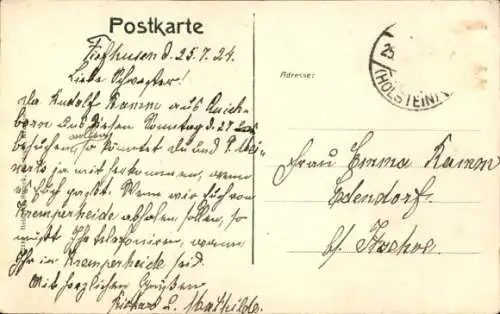 Postkarte
Fiefhusen d. 25.7.24.
Liebe Schwester!
Da Rudolf Kamm aus Quick-
born uns diesen Sonntag d. 27
besuchen, wollen
so könntet du und P.
ja mit herkommen, wenn
es Euch paßt. Wenn wir Euch von
Kremperheide abholen sollen, so
müßt Ihr telefonieren, wann
Ihr in Kremperheide seid.
Mit herzlichen Grüßen
Richard u. Mathilde.
Adresse:
25
(HOLSTEIN)
Frau Emma Kamm
Edendorf
b/ Itzehoe.